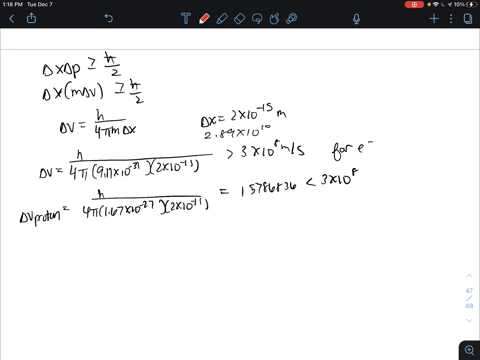 1:18 PM Tue Dec 7
10%
ΔxΔp ≥ ħ/2
Δx(mΔv) ≥ ħ/2
Δv = h/4πmΔx
Δx = 2×10^-15 m
2.89×10^10
Δv = h/4π(9.11×10^-31)(2×10^-15) > 3×10^8 m/s for e^-
Δv proton = h/4π(1.67×10^-27)(2×10^-15) = 15786836 < 3×10^8
47
/
48